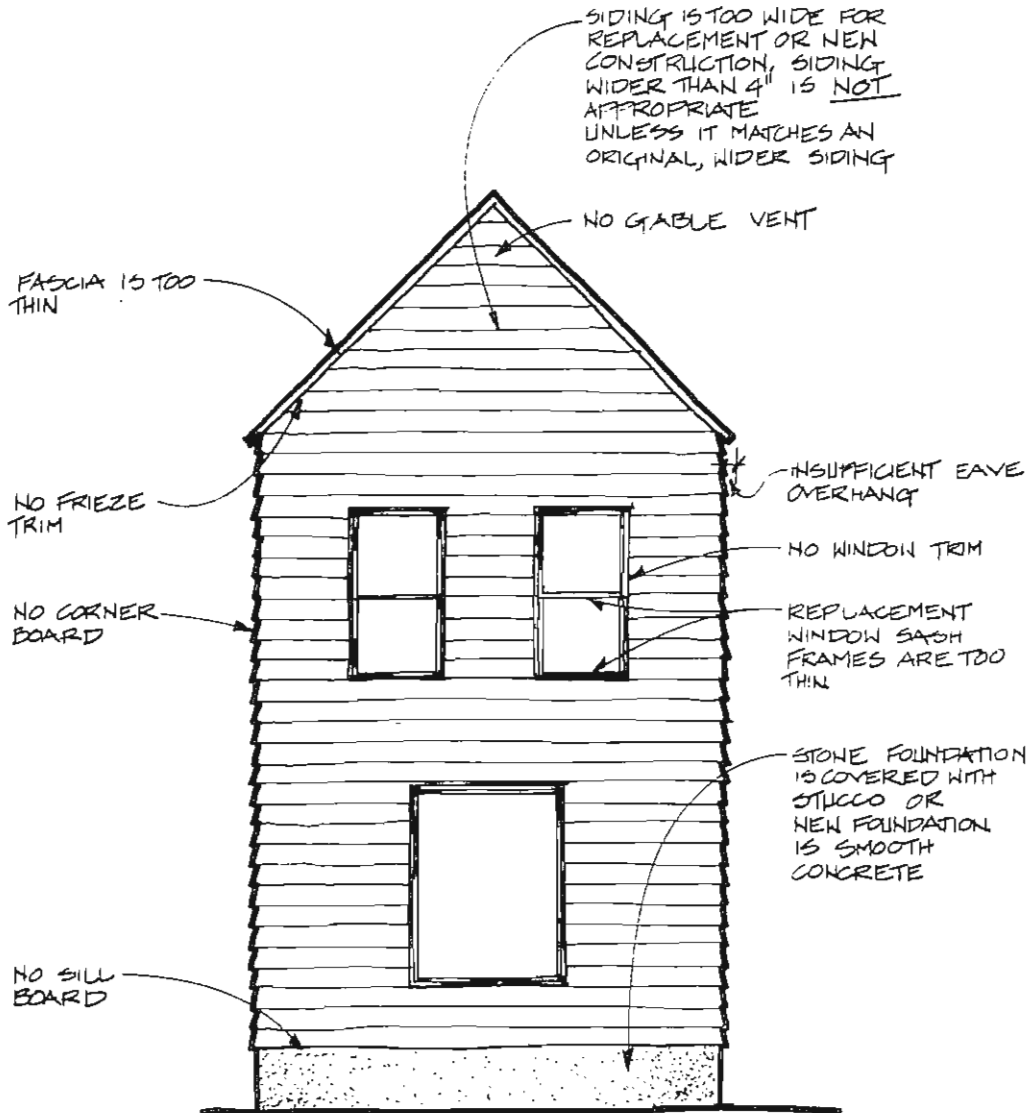 SIDING IS TOO WIDE FOR
REPLACEMENT OR NEW
CONSTRUCTION, SIDING
WIDER THAN 4" IS NOT
APPROPRIATE
UNLESS IT MATCHES AN
ORIGINAL, WIDER SIDING
NO GABLE VENT
FASCIA IS TOO
THIN
INSUFFICIENT EAVE
OVERHANG
NO FRIEZE
TRIM
NO WINDOW TRIM
NO CORNER
BOARD
REPLACEMENT
WINDOW SASH
FRAMES ARE TOO
THIN
STONE FOUNDATION
IS COVERED WITH
STUCCO OR
NEW FOUNDATION
IS SMOOTH
CONCRETE
NO SILL
BOARD